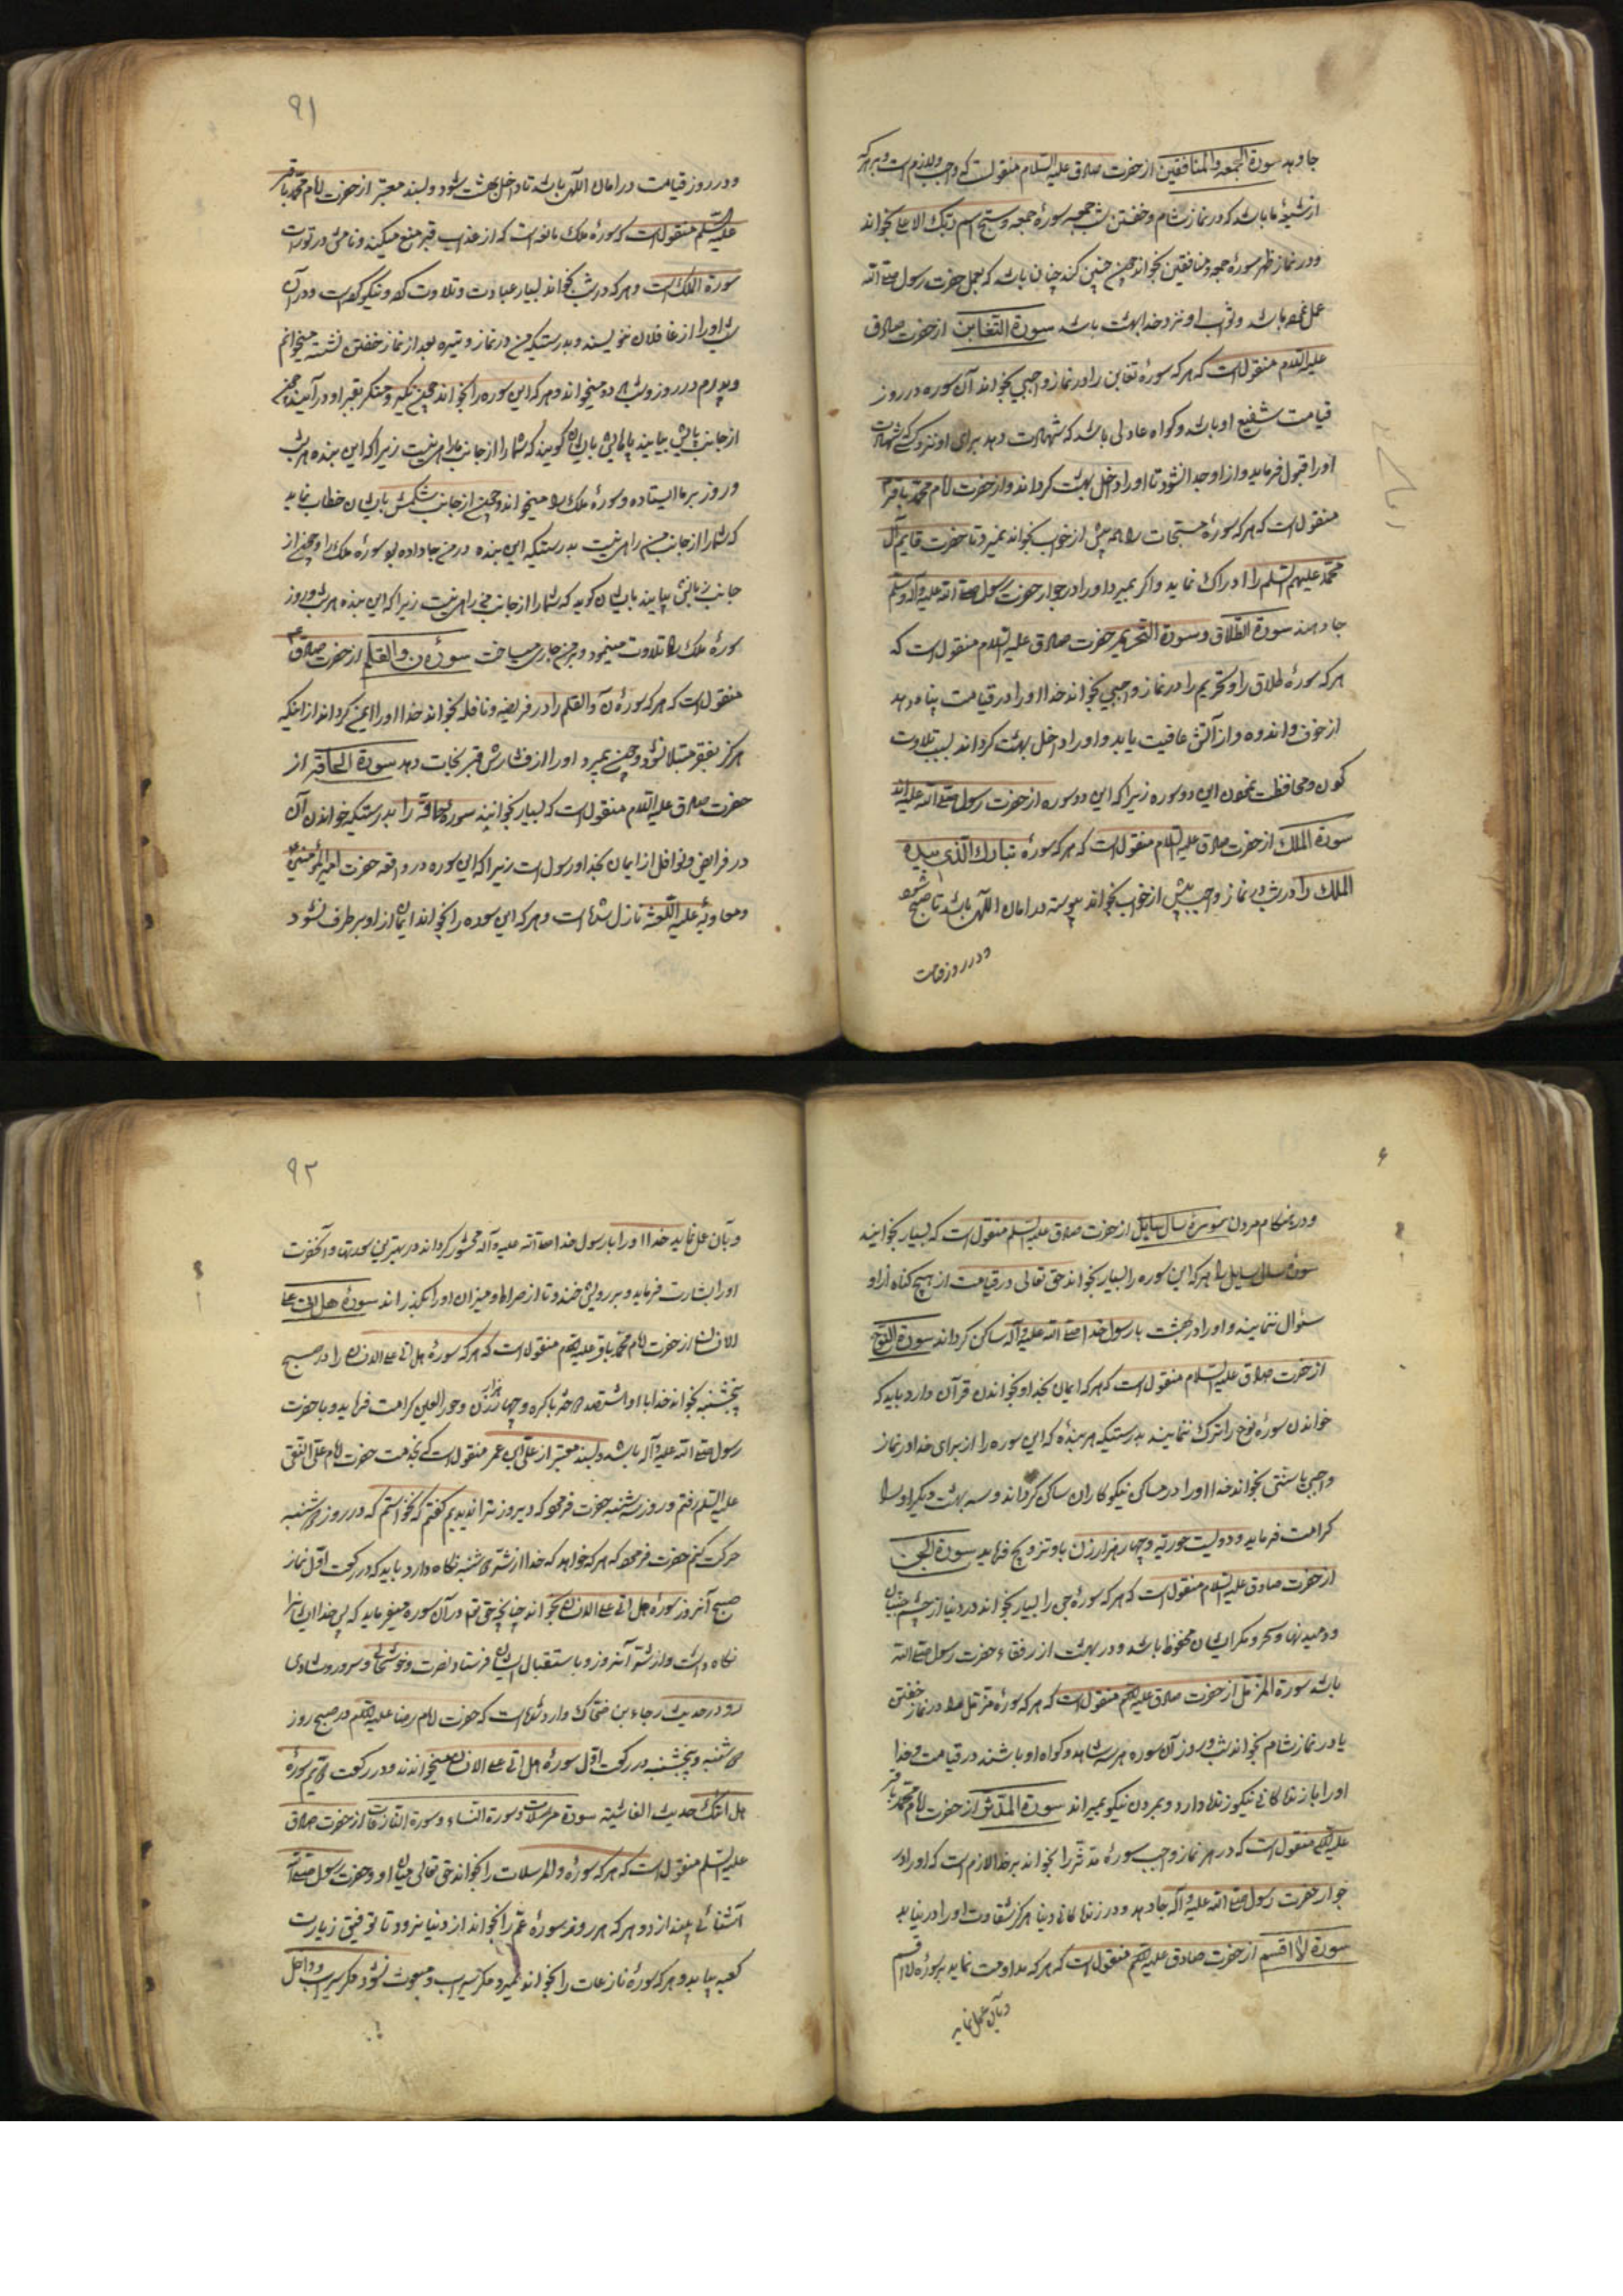 جا دهد سورة الجمعه والمنافقین از حضرت صادق علیه السلام منقولست که واجب ولازم است بر هر که
از شیعهٔ ما باشد که در نماز شام و خفتن شب جمعه سورهٔ جمعه و سبح اسم ربک الاعلی بخواند
و در نماز ظهر سورهٔ جمعه و منافقین بخواند چون چنین کند چنان باشد که بعمل حضرت رسول صلی الله
عمل نموده باشد و ثواب او نزد خدا بهشت باشد سورة التغابن از حضرت صادق
علیه السلام منقول است که هر که سورهٔ تغابن را در نماز واجبی بخواند آن سوره در روز
قیامت شفیع او باشد و گواه عادلی باشد که شهادت دهد برای او نزد کسی که شهادت
او را قبول فرماید و از او جدا نشود تا او را داخل بهشت گرداند و از حضرت امام محمد باقر ع
منقول است که هر که سورهٔ مسبحات را همه پیش از خواب بخواند نمیرد تا حضرت قایم آل
محمد علیهم السلم را ادراک نماید و اگر بمیرد او را در جوار حضرت رسول صلی الله علیه وآله وسلم
جا دهند سورة الطلاق وسورة التحریم حضرت صادق علیه السلام منقول است که
هر که سوره طلاق را و تحریم را در نماز واجبی بخواند خدا او را در قیامت پناه دهد
از خوف و اندوه و از آتش عافیت یابد و او را داخل بهشت گرداند بسبب تلاوت
کردن و محافظت نمودن این دو سوره زیرا که این دو سوره از حضرت رسول صلی الله علیه واله اند
سورة الملک از حضرت صادق علیه السلام منقول است که هر که سورهٔ تبارک الذی بیده
الملک را در شب در نماز واجب پیش از خواب بخواند پیوسته در امان اللهی باشد تا صبح شود
و در روز قیامت
۹۱
و در روز قیامت در امان اللهی باشد تا داخل بهشت شود و بسند معتبر از حضرت امام محمد باقر
علیه السلم منقول است که سورهٔ ملک مانعه است که از عذاب قبر منع میکند و نامش در تورات
سورة الملک است و هر که در شب بخواند بسیار عبادت و تلاوت کرده و نیکو کرده است و در آن
شب او را از غافلان ننویسند و بدرستیکه من در نماز وتیره بعد از نماز خفتن نشسته میخوانم
و پدرم در روز و شب میخواند و هر که این سوره را بخواند چون نکیر و منکر بقبر او درآیند چون
از جانب پایش بیایند پاهایش بایشان گویند که شما را از جانب ما راهی نیست زیرا که این بنده هر شب
و روز بر ما ایستاده و سورهٔ ملک را میخواند و چون از جانب شکمش بایشان خطاب نماید
که شما را از جانب من راهی نیست بدرستیکه این بنده در من جا داده بود سورهٔ ملک را و چون از
جانب زبانش بیایند بایشان گوید که شما را از جانب من راهی نیست زیرا که این بنده هر شب و روز
سورهٔ ملک را تلاوت مینمود و بر من جاری میساخت سورهٔ ن والقلم از حضرت صادق ع
منقول است که هر که سورهٔ ن والقلم را در فریضه و نافله بخواند خدا او را ایمن گرداند از اینکه
هرگز بفقر مبتلا نشود و چون بمیرد او را از فشارش قبر نجات دهد سورة الحاقه از
حضرت صادق علیه السلام منقول است که بسیار بخوانید سورهٔ حاقه را بدرستیکه خواندن آن
در فرایض و نوافل از ایمان بخدا و رسول است زیرا که این سوره در واقعه حضرت امیر المؤمنین
و معاویه علیه اللعنه نازل شده است و هر که این سوره را بخواند ایمان از او برطرف نشود
و در هنگام مردن سورهٔ سال سایل از حضرت صادق علیه السلم منقول است که بسیار بخوانید
سورهٔ سال سایل را هر که این سوره را بسیار بخواند حق تعالی در قیامت از هیچ گناه از او
سؤال ننماید و او را در بهشت با رسول خدا صلی الله علیه وآله ساکن گرداند سورة النوح
از حضرت صادق علیه السلام منقول است که هر که ایمان بخدا و بخواندن قرآن دارد باید که
خواندن سورهٔ نوح را ترک ننمایند بدرستیکه هر بندهٔ که این سوره را از برای خدا در نماز
واجبی یا سنتی بخواند خدا او را در مساکن نیکوکاران ساکن گرداند و سه بهشت دیگر او را
کرامت فرماید و دویست حوریه و چهار هزار زن باو تزویج فرماید سورة الجن
از حضرت صادق علیه السلام منقول است که هر که سورهٔ جن را بسیار بخواند در دنیا از چشم جنیان
و دمیدنها و سحر و مکر ایشان محفوظ باشد و در بهشت از رفقاء حضرت رسول صلی الله
باشد سورة المزمل از حضرت صادق علیه السلم منقول است که هر که سورهٔ مزمل را در نماز خفتن
یا در نماز شام بخواند شب و روز آن سوره هر سه شاهد و گواه او باشند در قیامت و خدا
او را با زندگانی نیکو زنده دارد و بمردن نیکو بمیراند سورة المدثر از حضرت امام محمد باقر
علیه السلم منقول است که در هر نماز واجب سورهٔ مدثر را بخواند بر خدا لازم است که او را در
جوار حضرت رسول صلی الله علیه وآله جا دهد و در زندگانی دنیا هرگز شقاوت او را در نیابد
سورة لا اقسم از حضرت صادق علیه السلم منقول است که هر که مداومت نماید بر سورهٔ لا اقسم
و بآن عمل نماید
۹۲
و بآن عمل نماید خدا او را با رسول خدا صلی الله علیه وآله محشور گرداند در بهترین صورتها و آنحضرت
او را بشارت فرماید و بر رویش خندد تا از صراط و میزان او را بگذراند سورهٔ هل اتی علی
الانسان از حضرت امام محمد باقر علیه السلم منقول است که هر که سورهٔ هل اتی علی الانسان را در صبح
پنجشنبه بخواند خدا باو هشتصد دختر باکره و چهار هزار زن و حور العین کرامت فرماید و با حضرت
رسول صلی الله علیه وآله باشد و بسند معتبر از علی ابن عمر منقول است که بخدمت حضرت امام علی النقی
علیه السلم رفتم روز سه شنبه حضرت فرمود که دیروز ترا ندیدیم گفتم که نخواستم که در روز دوشنبه
حرکت کنم حضرت فرمود که هر که خواهد که خدا از شر دوشنبه نگاه دارد باید که در رکعت اول نماز
صبح آنروز سورهٔ هل اتی علی الانسان بخواند چنانچه حق تعالی در آن سوره میفرماید که پس خدا ایشانرا
نگاه داشت از شر آنروز و باستقبال ایشان فرستاد نضرت و خوشحالی و سرور و شادی
و در حدیث رجاء بن ضحاک وارد شده است که حضرت امام رضا علیه السلم در صبح روز
دوشنبه و پنجشنبه در رکعت اول سورهٔ هل اتی علی الانسان میخواندند و در رکعت دویم سورهٔ
هل اتیک حدیث الغاشیه سورة مرسلات وسورة النباء وسورة النازعات از حضرت صادق
علیه السلم منقول است که هر که سوره والمرسلات را بخواند حق تعالی میان او و حضرت رسول صلی الله
آشنائی بیندازد و هر که هر روز سورهٔ عم را بخواند از دنیا نرود تا توفیق زیارت
کعبه بیابد و هر که سورهٔ نازعات را بخواند نمیرد مگر سیراب و مبعوث نشود مگر سیراب و داخل